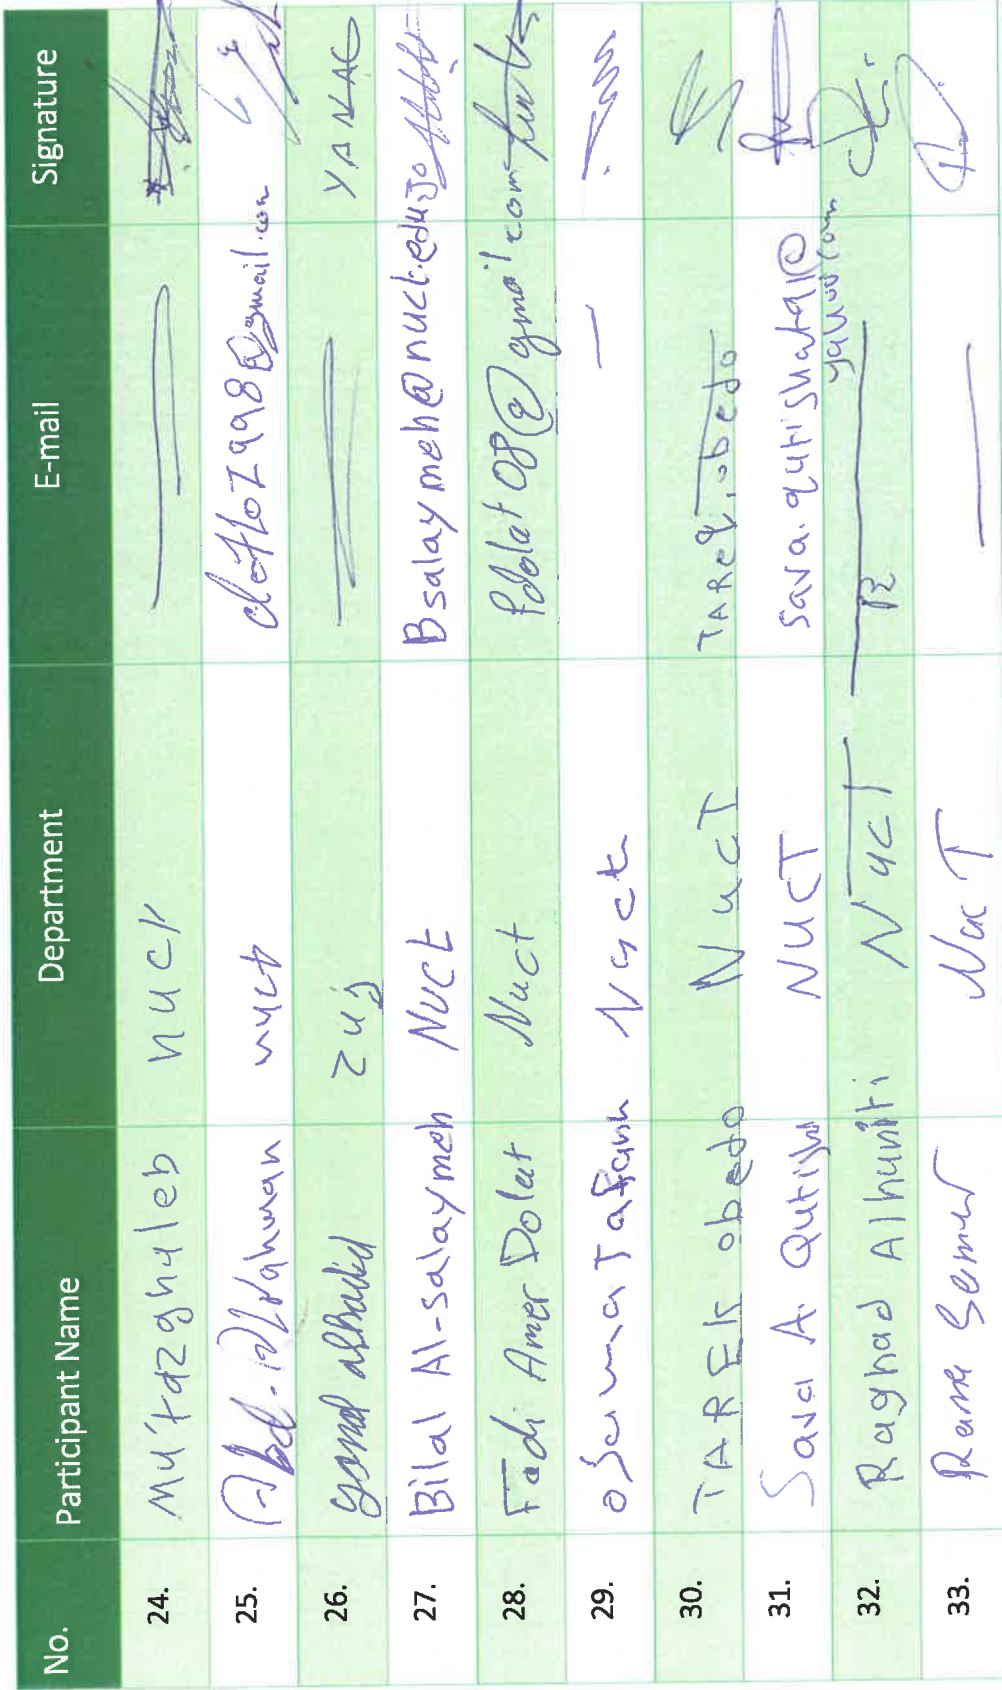 No. Participant Name Department E-mail Signature
24. Mu'tazghuleb nuct
25. nuct @gmail.com
26. zuj YANAC
27. Bilal Al-salaymeh NUCT Bsalaymeh@nuct.edu.jo
28. Fadi Amer Dolat Nuct fdolat08@gmail.com
29. osama Nuct
30. TAREK obedo NUCT TAREq.obedo
31. Sara A Qutish NUCT sara.qutishat91@
yahoo.com
32. Raghad Alhuniti NUCT
33. Rama NUCT